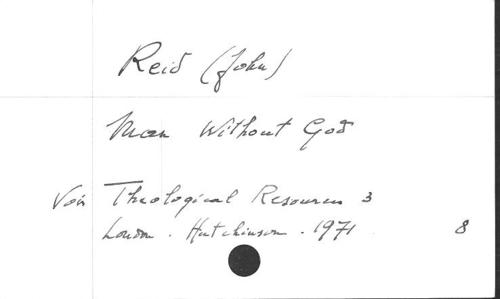 Reid (John)
Man Without God
Voir Theological Resources 3
London. Hutchinson. 1971.
8